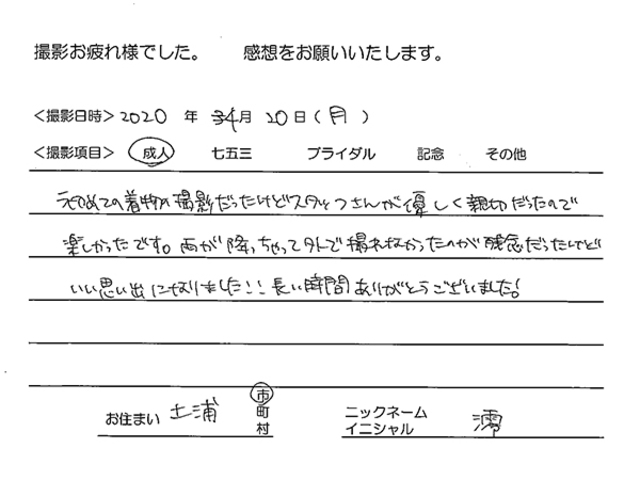 撮影お疲れ様でした。　感想をお願いいたします。
＜撮影日時＞2020 年 4月 20日（月）
＜撮影項目＞ 成人　七五三　ブライダル　記念　その他
初めての着物の撮影だったけどスタッフさんが優しく親切だったので
楽しかったです。雨が降っちゃって外で撮れなかったのが残念だったけど
いい思い出になりました!! 長い時間ありがとうございました!
お住まい 土浦 市 町 村　ニックネーム イニシャル 澪